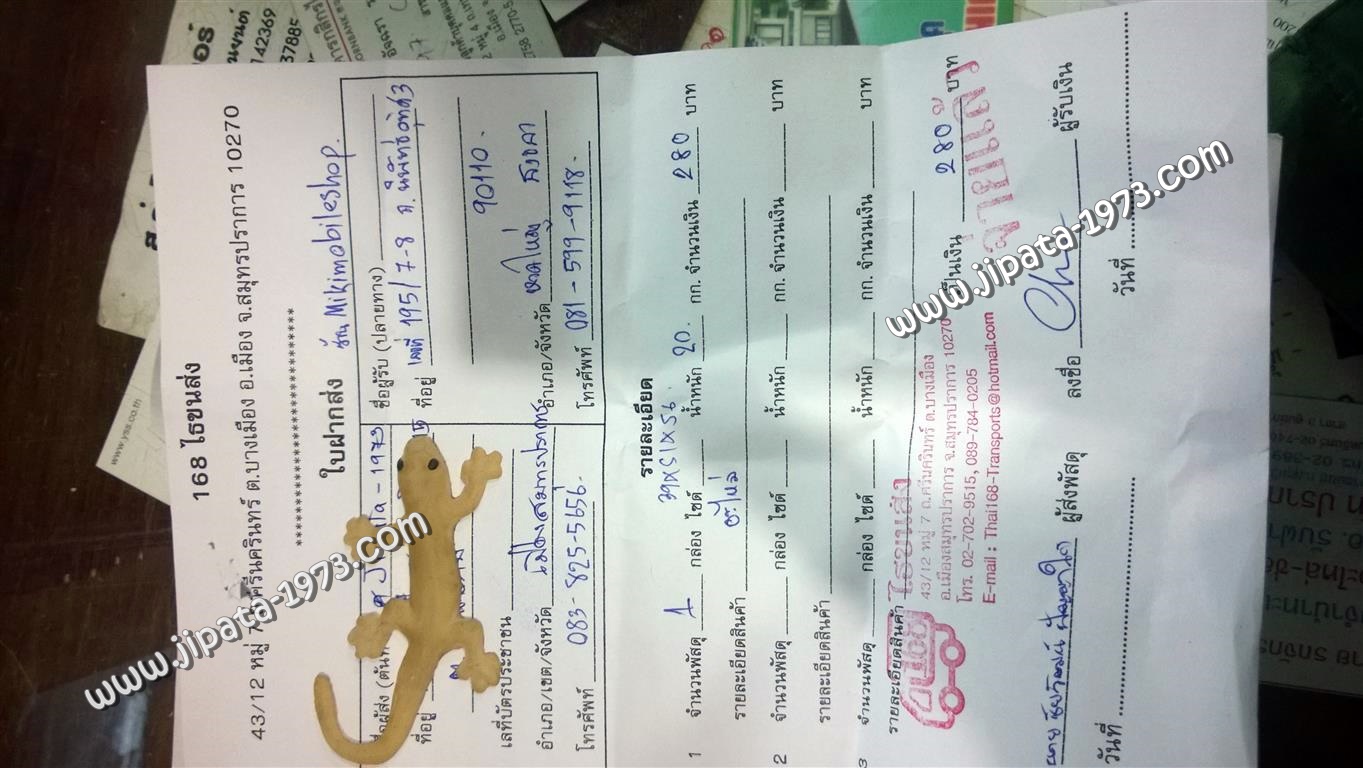 168 ไธขนส่ง
43/12 หมู่ 7 ถ.ศรีนครินทร์ ต.บางเมือง อ.เมือง จ.สมุทรปราการ 10270
**********************************
ใบฝากส่ง
ร้าน Mikimobileshop.
- 1973
ชื่อผู้รับ (ปลายทาง)
ที่อยู่
ที่อยู่ เลขที่ 195/7-8 ถ. นิพัทธ์อุทิศ 3
90110.
เลขที่บัตรประชาชน
อำเภอ/เขต/จังหวัด เมืองสมุทรปราการ
อำเภอ/จังหวัด หาดใหญ่ สงขลา
โทรศัพท์ 083-825-5656.
โทรศัพท์ 081-599-9118
รายละเอียด
39x51x56.
1 จำนวนพัสดุ 1 กล่อง ไซด์ น้ำหนัก 20. กก. จำนวนเงิน 280 บาท
รายละเอียดสินค้า อะไหล่
2 จำนวนพัสดุ กล่อง ไซด์ น้ำหนัก กก. จำนวนเงิน บาท
รายละเอียดสินค้า
3 จำนวนพัสดุ กล่อง ไซด์ น้ำหนัก กก. จำนวนเงิน บาท
รายละเอียดสินค้า
ไธขนส่ง
43/12 หมู่ 7 ถ.ศรีนครินทร์ ต.บางเมือง
อ.เมืองสมุทรปราการ จ.สมุทรปราการ 10270
โทร. 02-702-9515, 089-784-0205
E-mail : Thai168-Transports@hotmail.com
เป็นเงิน 280 บาท
จ่ายแล้ว
ผู้ส่งพัสดุ
ลงชื่อ ผู้รับเงิน
วันที่
วันที่
www.jipata-1973.com
www.jipata-1973.com
www.yss.co.th
142369
37885